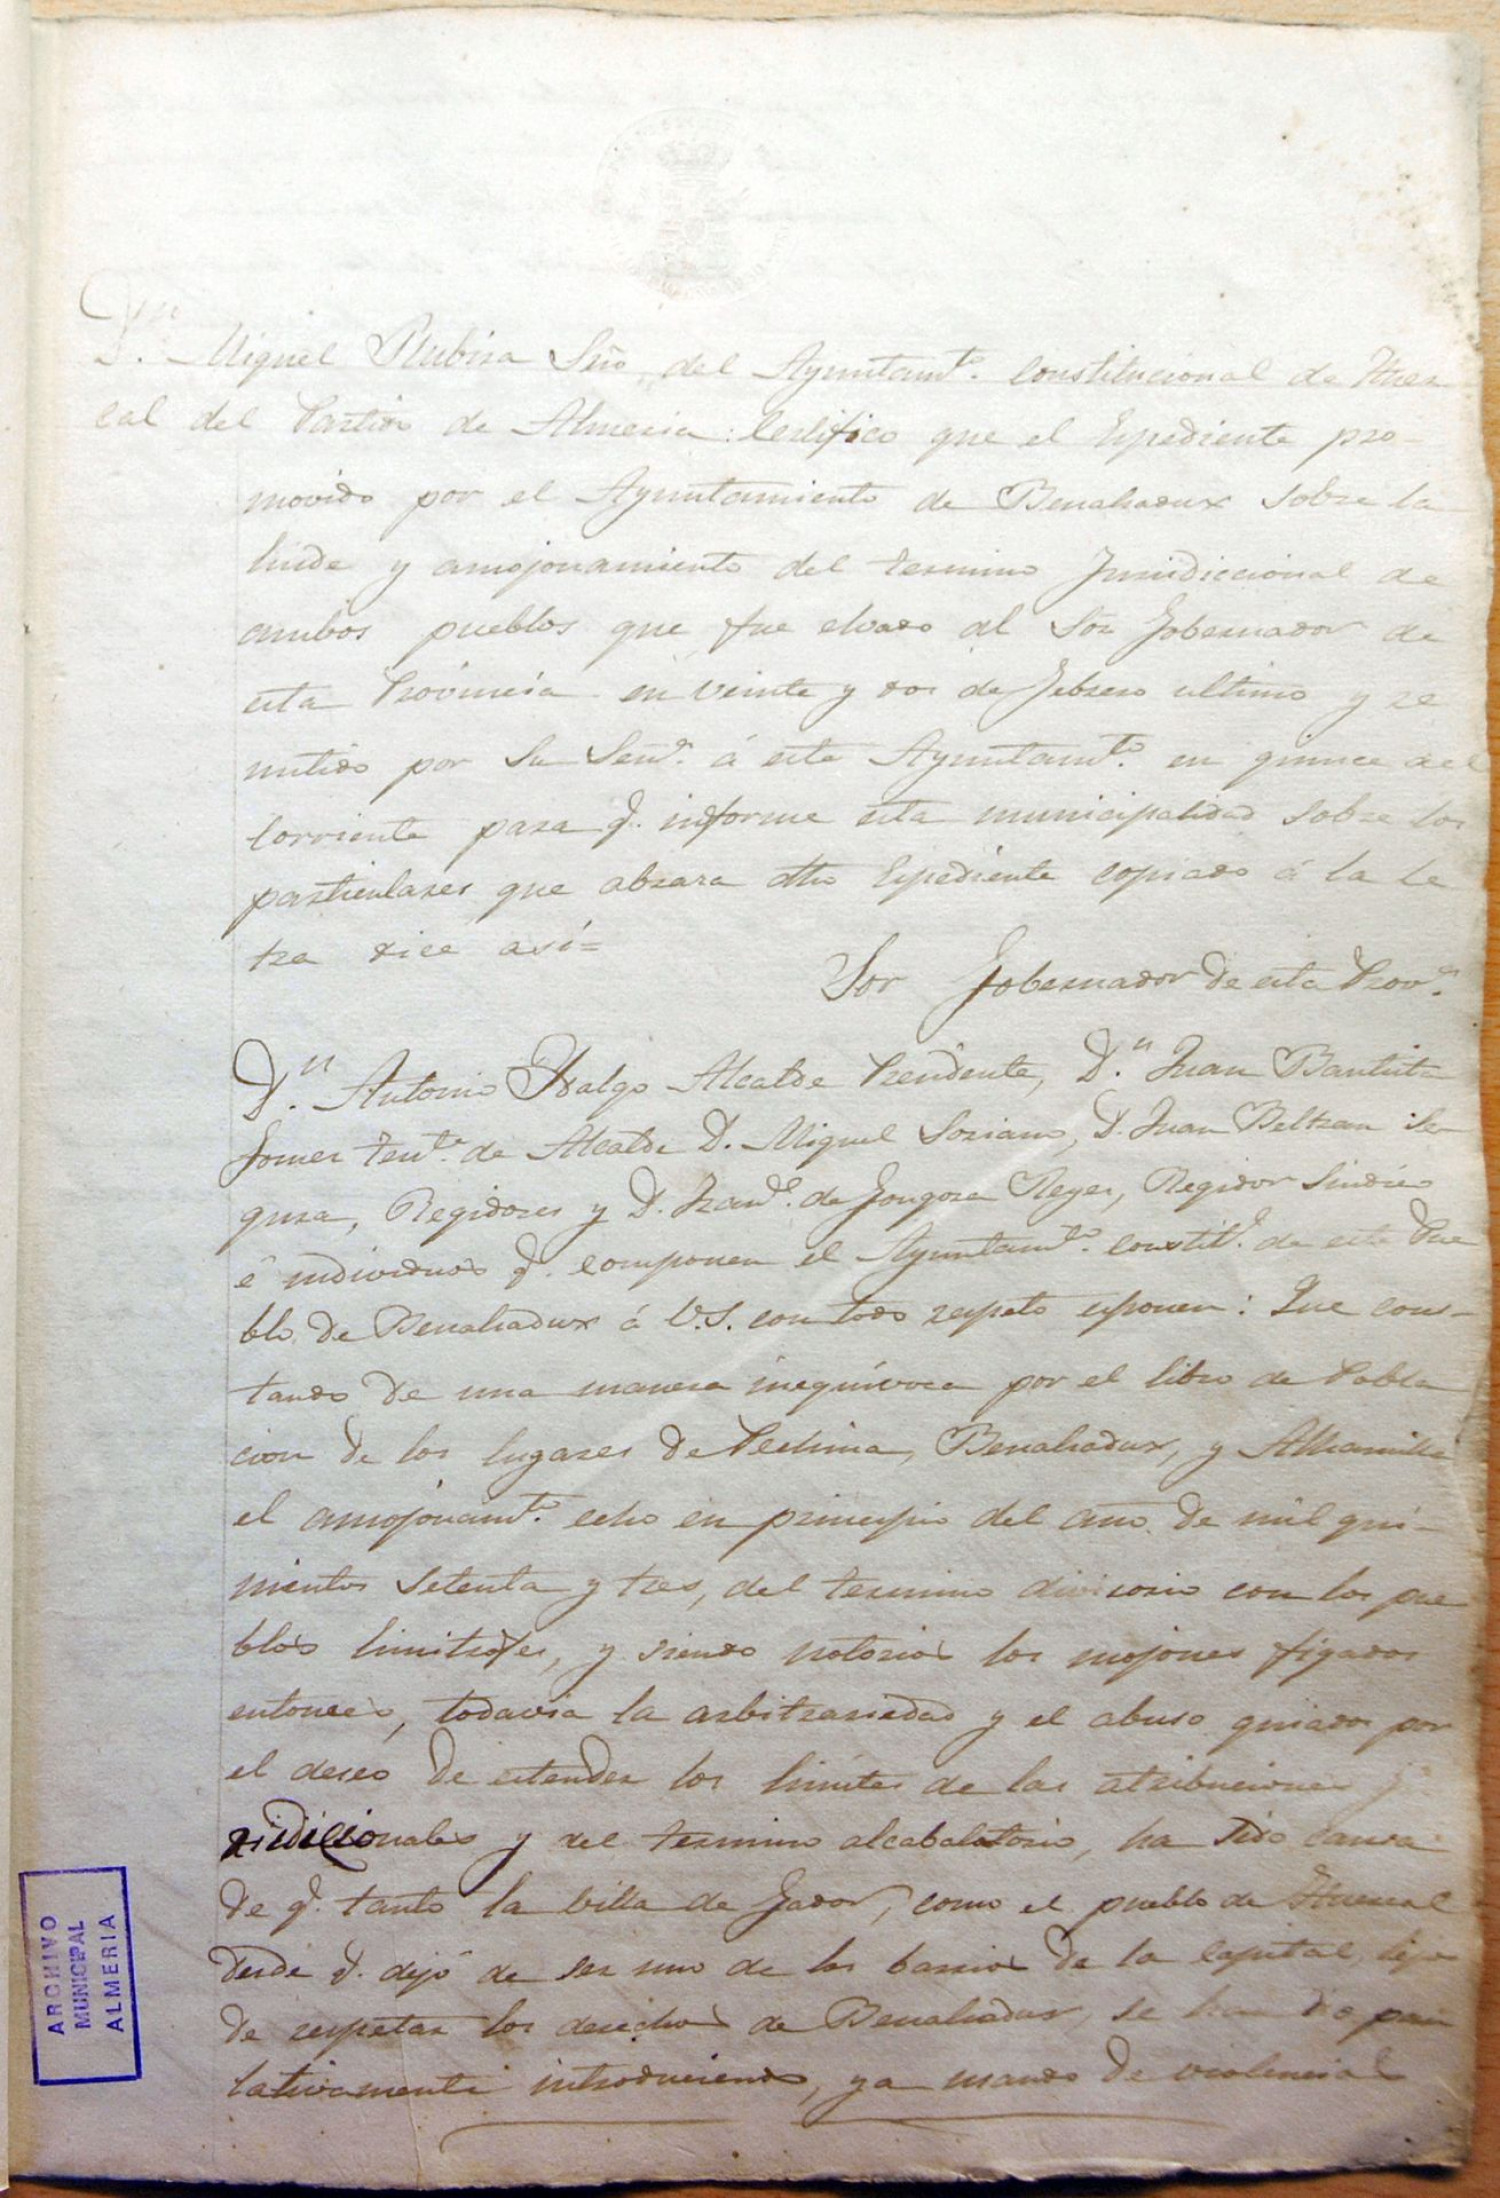 D.n Miguel Rubira Srio del Ayuntam.to constitucional de Huer
cal del Partido de Almeria: Certifico que el Espediente pro-
movido por el Ayuntamiento de Benahadux sobre la
linde y amojonamiento del termino Jurisdiccional de
ambos pueblos que fue elvado al Sor Gobernador de
esta Provincia en veinte y dos de Febrero ultimo y re
mitido por Su Señ.a á este Ayuntam.to en quince del
corriente para q.e informe esta municipalidad sobre los
particulares que abraza dho Espediente copiado á la le
tra dice así=
Sor Gobernador de esta Prov.a
D.n Antonio Ydalgo Alcalde Presidente, D.n Juan Bautista
Gomez ten.te de Alcalde D. Miguel Soriano, D. Juan Beltran Se
gura, Regidores y D. Fran.co de Gongora Reyes, Regidor Sindico
é individuos q.e componen el Ayuntam.to constit.l de este Pue
blo de Benahadux á V.S. con todo respeto esponen: Que cons-
tando de una manera inequívoca por el libro de Pobla
cion de los lugares de Pechina, Benahadux, y Alhamilla
el amojonam.to echo en principio del año de mil qui-
nientos setenta y tres, del termino divisorio con los pue
blos limitrofes, y siendo notorios los mojones figados
entonces, todavia la arbitrariedad y el abuso guiados por
el deseo de estender los limites de las atribuciones
risdicionales y del termino alcabalatorio, ha sido causa
de q.e tanto la villa de Gador, como el pueblo de Huercal
desde q.e dejó de ser uno de los barrios de la Capital, lejos
de respetar los derechos de Benahadux, se han ido pau
lativamente introduciendo, ya usando de violencias
ARCHIVO
MUNICIPAL
ALMERIA